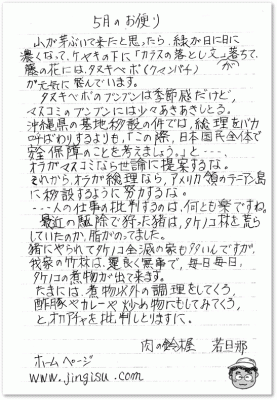 5月のお便り
山が芽ぶいて来たと思ったら、緑が日に日に
濃くなって、ケヤキの下に「カラスの落とし文」が落ちて、
藤の花には、タスキベボ(クマンバチ)
が元気に飛んでいます。
タスキベボのブンブンは季節感だけど、
マスコミのブンブンには少々あきあきしとる。
沖縄県の基地移設の件では、総理をバカ
呼ばわりするよりも、「この際、日本国民全体で
安全保障のことを考えましょう。」と----
オラがマスコミなら世論に提案するな。
それから、オラが総理なら、アメリカ領のテニアン島
に移設するように努力するな。
----人の仕事の批判するのは、何とも楽ですね。
最近の駆除で狩った猪は、タケノコ林を荒ら
していたのか、脂がのってました。
猪にやられてタケノコ全滅の家も多いんですが、
我家の竹林は、運良く無事で、毎日毎日、
タケノコの煮物が出て来ます。
たまには、煮物以外の調理をしてくり、
酢豚やカレーや炒め物にもしてみてくり、
と、オカアチャを批判しとりますに。
肉の鈴木屋 若旦那
ホームページ
www.jingisu.com